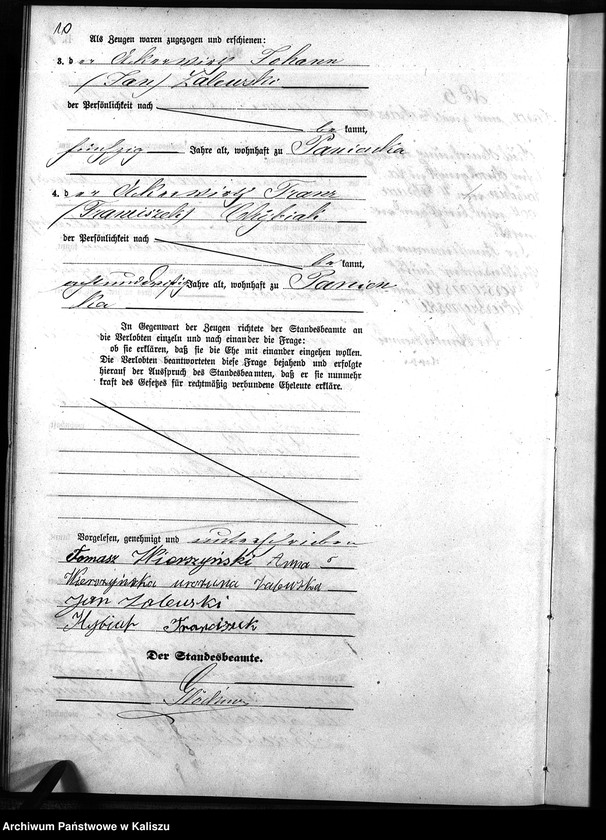 10
Als Zeugen waren zugezogen und erschienen:
3. d er Ackerwirth Johann
(Jan) Zalewski
der Persönlichkeit nach
be kannt,
fünfzig Jahre alt, wohnhaft zu Panienka
4. d er Ackerwirth Franz
(Franciszek) Chybiak
der Persönlichkeit nach
be kannt,
achtunddreißig Jahre alt, wohnhaft zu Panien
ka
In Gegenwart der Zeugen richtete der Standesbeamte an
die Verlobten einzeln und nach einander die Frage:
ob sie erklären, daß sie die Ehe mit einander eingehen wollen.
Die Verlobten beantworteten diese Frage bejahend und erfolgte
hierauf der Ausspruch des Standesbeamten, daß er sie nunmehr
kraft des Gesetzes für rechtmäßig verbundene Eheleute erkläre.
Vorgelesen, genehmigt und unterschrieben
Tomasz Wierzyński Anna
Wierzyńska urozuna Zalewska
Jan Zalewski
Hybiak Franciszek
Der Standesbeamte.
Archiwum Państwowe w Kaliszu